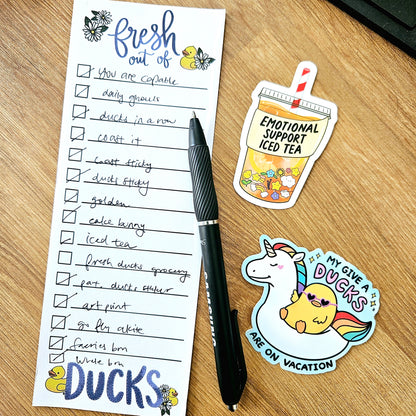 fresh
out of
you are capable
daily ghouls
ducks in a row
coast it
coast sticky
ducks sticky
golden
cake bunny
iced tea
fresh ducks grocery
pat. ducks sticker
art print
go fly a kite
faeries bm
whale bm
DUCKS
EMOTIONAL
SUPPORT
ICED TEA
MY GIVE A
DUCKS
ARE ON VACATION